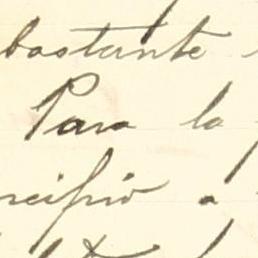 bastante
Para la
ncipió a